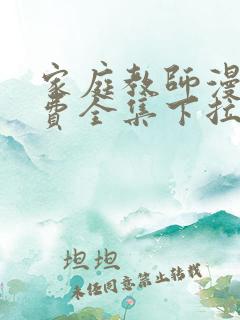 家庭教师漫
费全集下拉
坦坦
未经同意禁止转载